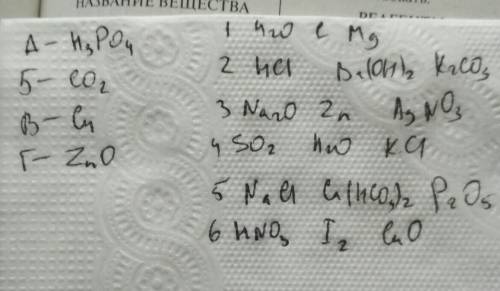 НАЗВАНИЕ ВЕЩЕСТВА
РЕАГЕНТЫ
А – H3PO4
Б – CO2
В – Cu
Г – ZnO
1 H2O C Mg
2 HCl Ba(OH)2 K2CO3
3 Na2O Zn AgNO3
4 SO2 KCl
5 NaCl (HCO3)2 P2O5
6 HNO3 I2 CuO